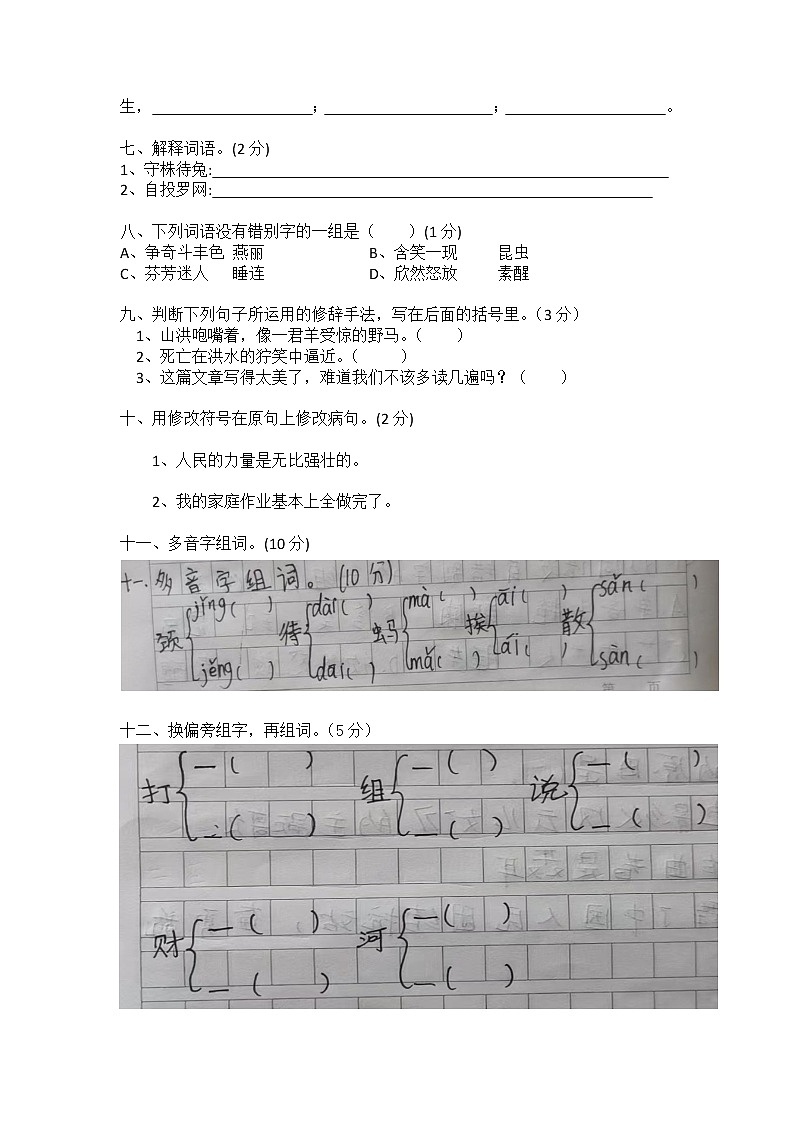 生，____________________；____________________；____________________。
七、解释词语。(2分)
1、守株待兔:____________________
2、自投罗网:____________________
八、下列词语没有错别字的一组是（　　）(1分)
A、争奇斗丰色 燕丽　　B、含笑一现　　昆虫
C、芬芳迷人　睡连　　D、欣然怒放　　素醒
九、判断下列句子所运用的修辞手法，写在后面的括号里。（3分）
1、山洪咆嘴着，像一君羊受惊的野马。（　　）
2、死亡在洪水的狞笑中逼近。（　　）
3、这篇文章写得太美了，难道我们不该多读几遍吗？（　　）
十、用修改符号在原句上修改病句。(2分)
1、人民的力量是无比强壮的。
2、我的家庭作业基本上全做完了。
十一、多音字组词。(10分)
十一.多音字组词。(10分)
jǐng(　) dài(　) mà(　) āi(　) sǎn(　)
颈 待 蚂 挨 散
jěng(　) dāi(　) mǎ(　) ái(　) sàn(　)
十二、换偏旁组字，再组词。（5分）
一(　) 一(　) 一(　)
打 组 说
一(　) 一(　) 一(　)
一(　) 一(　)
财 河
一(　) 一(　)